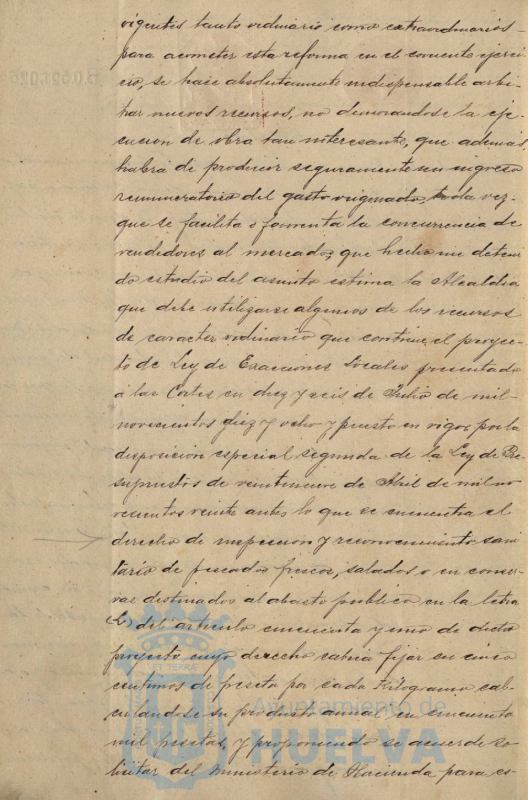 vigentes tanto ordinario como extraordinarios
para acometer esta reforma en el corriente ejerci-
cio, se hace absolutamente indispensable arbi-
trar nuevos recursos, no demorandose la eje-
cucion de obra tan interesante, que además,
habrá de producir seguramente un ingreso
remuneratorio del gasto originado, toda vez
que se facilita o fomenta la concurrencia de
vendedores al mercado; que hecho un deteni-
do estudio del asunto estima la Alcaldia
que debe utilizarse algunos de los recursos
de caracter ordinario que contiene el proyec-
to de Ley de Exacciones Locales presentado
á las Cortes en diez y seis de Julio de mil
novecientos diez y ocho y puesto en vigor por la
disposición especial segunda de la Ley de Pre-
supuestos de veintinueve de Abril de mil no-
vecientos veinte entre lo que se encuentra el
derecho de inspeccion y reconocimiento sani-
tario de pescados frescos, salados o en conser-
vas destinados al abasto publico en la letra
del articulo cincuenta y uno de dicho
proyecto cuyo derecho cabria fijar en cinco
centimos de peseta por cada Kilogramo cal-
culandose su producto anual en cincuenta
mil pesetas, y proponiendo se acuerde so-
licitar del Ministerio de Hacienda para es-
ET TERRÆ
Ayuntamiento de
HUELVA